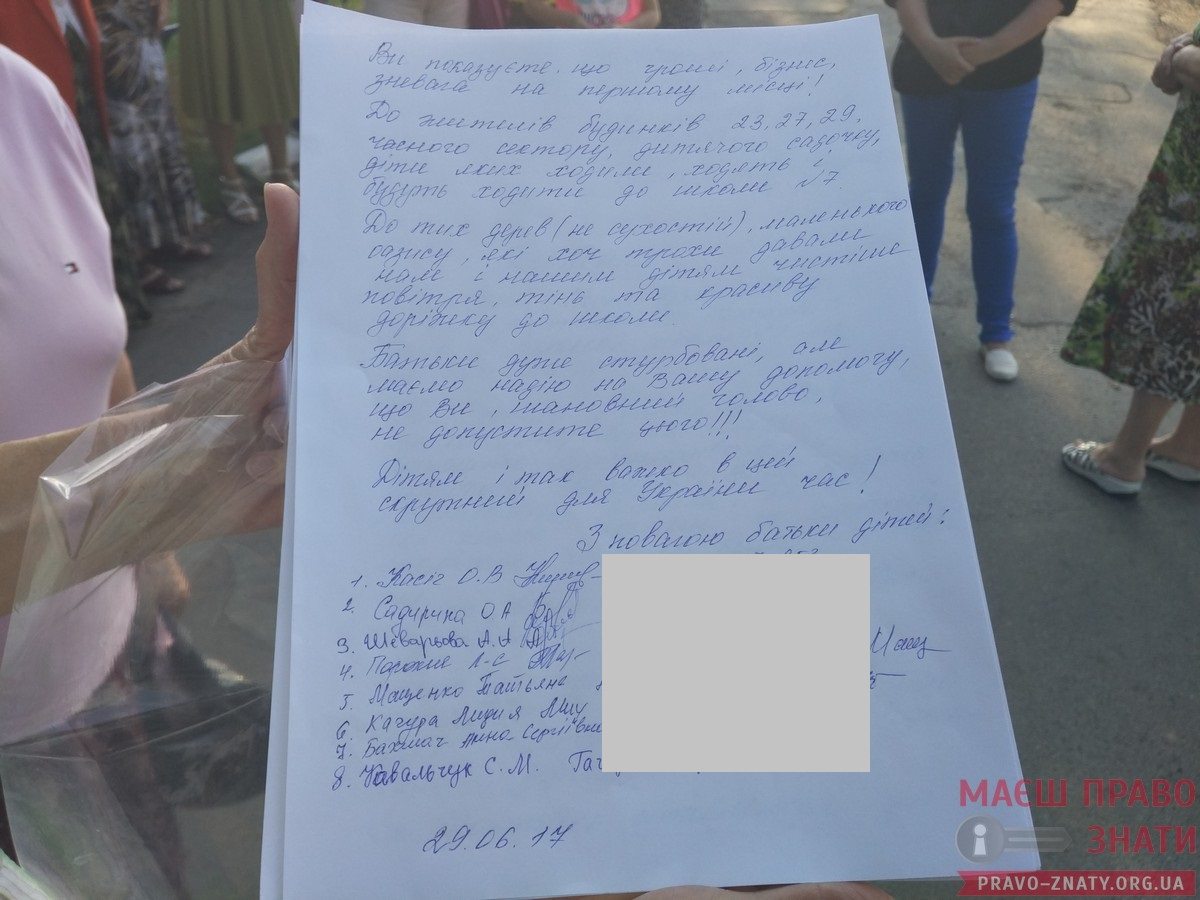 Ви показуєте, що гроші, бізнес,
зневага на першому місці!
До жителів будинків 23, 27, 29,
часного сектору, дитячого садочку,
діти яких ходили, ходять і
будуть ходити до школи №7.
До тих дерев (не сухостій), маленького
оазису, які хоч трохи давали
нам і нашим дітям чистіше
повітря, тінь та красиву
доріжку до школи.
Батьки дуже стурбовані, але
маємо надію на Вашу допомогу,
що Ви, шановний голово,
не допустите цього!!!
Дітям і так важко в цей
скрутний для України час!
З повагою батьки дітей:
1. Касіч О.В
2. О А
3. Шеварьова А.А
4.
5. Мащенко Татьяна
6. Качура Лидия
7. Бахмач Анна Сергіївна
8. Ковальчук С.М.
29.06.17
МАЄШ ПРАВО
ЗНАТИ
PRAVO-ZNATY.ORG.UA